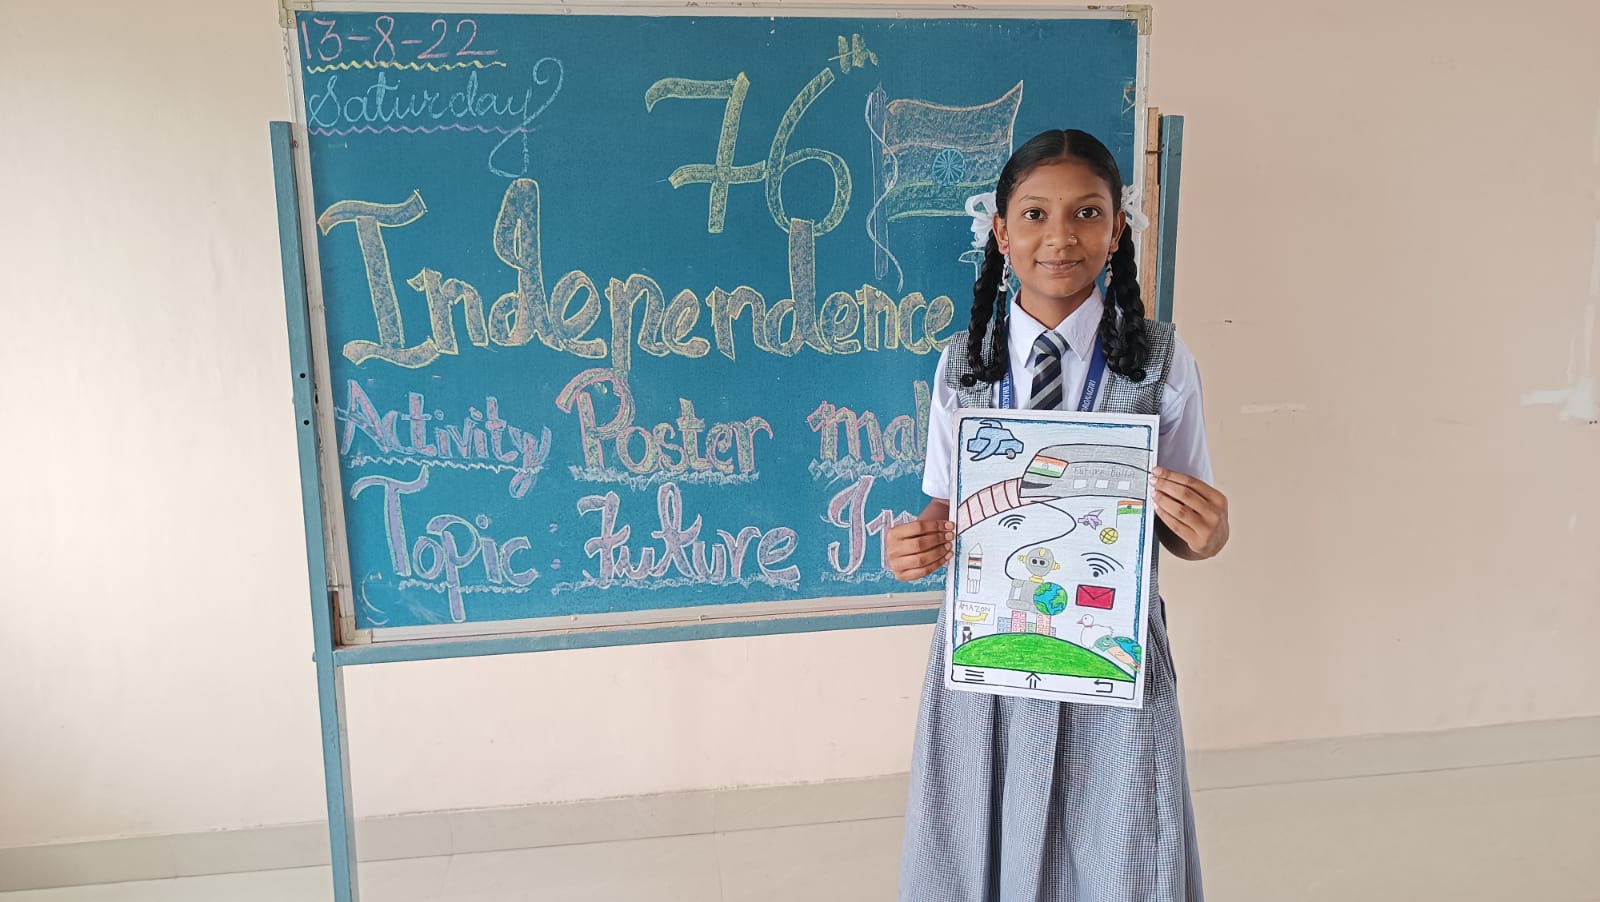 13-8-22
Saturday
76th
Independence
Activity Poster mak
Topic : Future In
Future Bullet
AMAZON